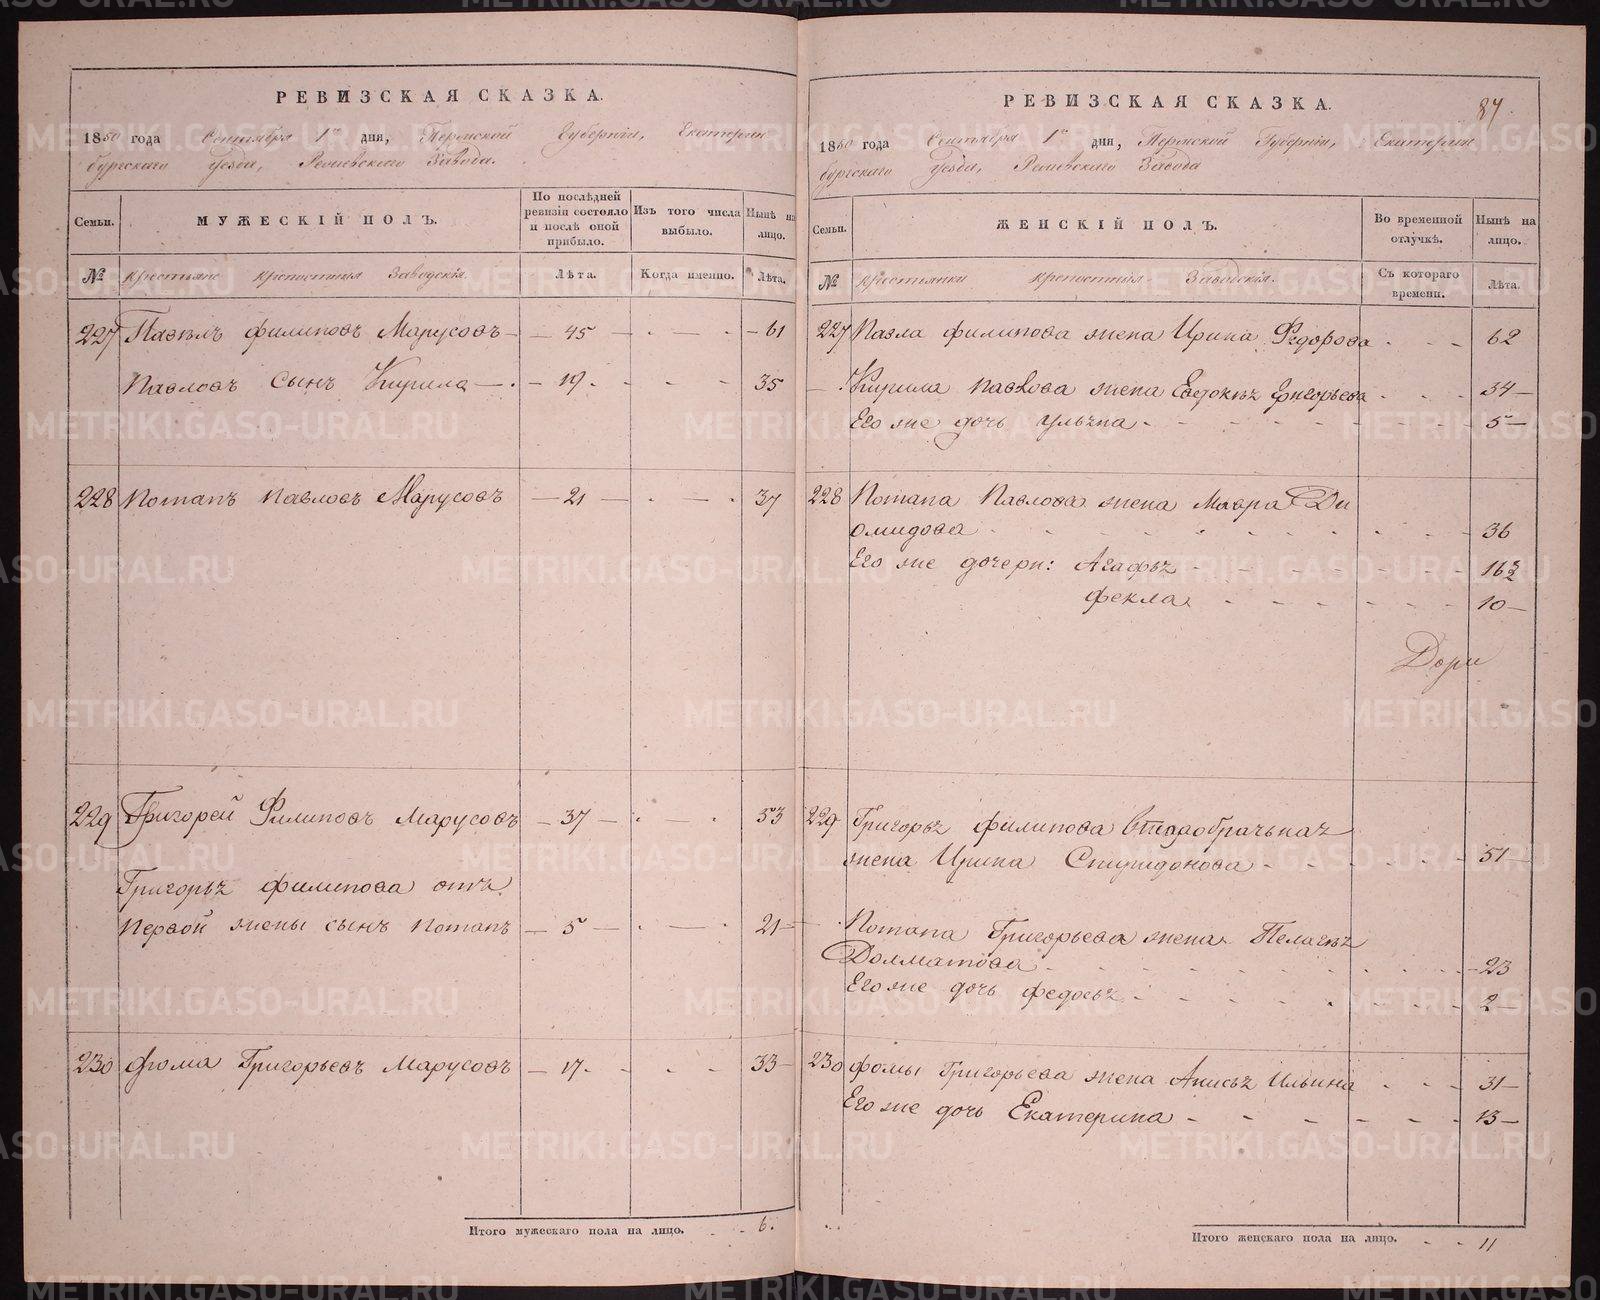 РЕВИЗСКАЯ СКАЗКА.
1850 года Сентября 1го дня, Пермской Губерніи, Екатерин
бургскаго Уезда, Режевскаго Завода.
Семьи.
МУЖЕСКІЙ ПОЛЪ.
По послѣдней ревизіи состояло и послѣ оной прибыло.
Изъ того числа выбыло.
Нынѣ на лицо.
№
Крестьяне крепостныя Заводскія.
Лѣта.
Когда именно.
Лѣта.
227 Павелъ Филиповъ Марусовъ 45 61
Павловъ сынъ Кирила 19 35
228 Потапъ Павловъ Марусовъ 21 37
229 Григорей Филиповъ Марусовъ 37 53
Григорья Филипова отъ
первой жены сынъ Потапъ 5 21
230 Фома Григорьевъ Марусовъ 17 33
Итого мужескаго пола на лицо. 6.
РЕВИЗСКАЯ СКАЗКА.
1850 года Сентября 1го дня, Пермской Губерніи, Екатерин
бургскаго Уезда, Режевскаго Завода
Семьи.
ЖЕНСКІЙ ПОЛЪ.
Во временной отлучкѣ.
Нынѣ на лицо.
№
Крестьянки крепостныя Заводскія.
Съ котораго времени.
Лѣта.
227 Павла Филипова жена Ирина Федорова 62
Кирила Павлова жена Евдокѣя Григорьева 34
Его же дочь Ульяна 5
228 Потапа Павлова жена Мавра Ди
омидова 36
Его же дочери: Агафья 16
Фекла 10
229 Григорья Филипова второбрачьная
жена Ирина Спиридонова 51
Потапа Григорьева жена Пелагѣя
Долматова 23
Его же дочь Федосья 2
230 Фомы Григорьева жена Анисья Ильина 31
Его же дочь Екатерина 13
Итого женскаго пола на лицо. 11
METRIKI.GASO-URAL.RU